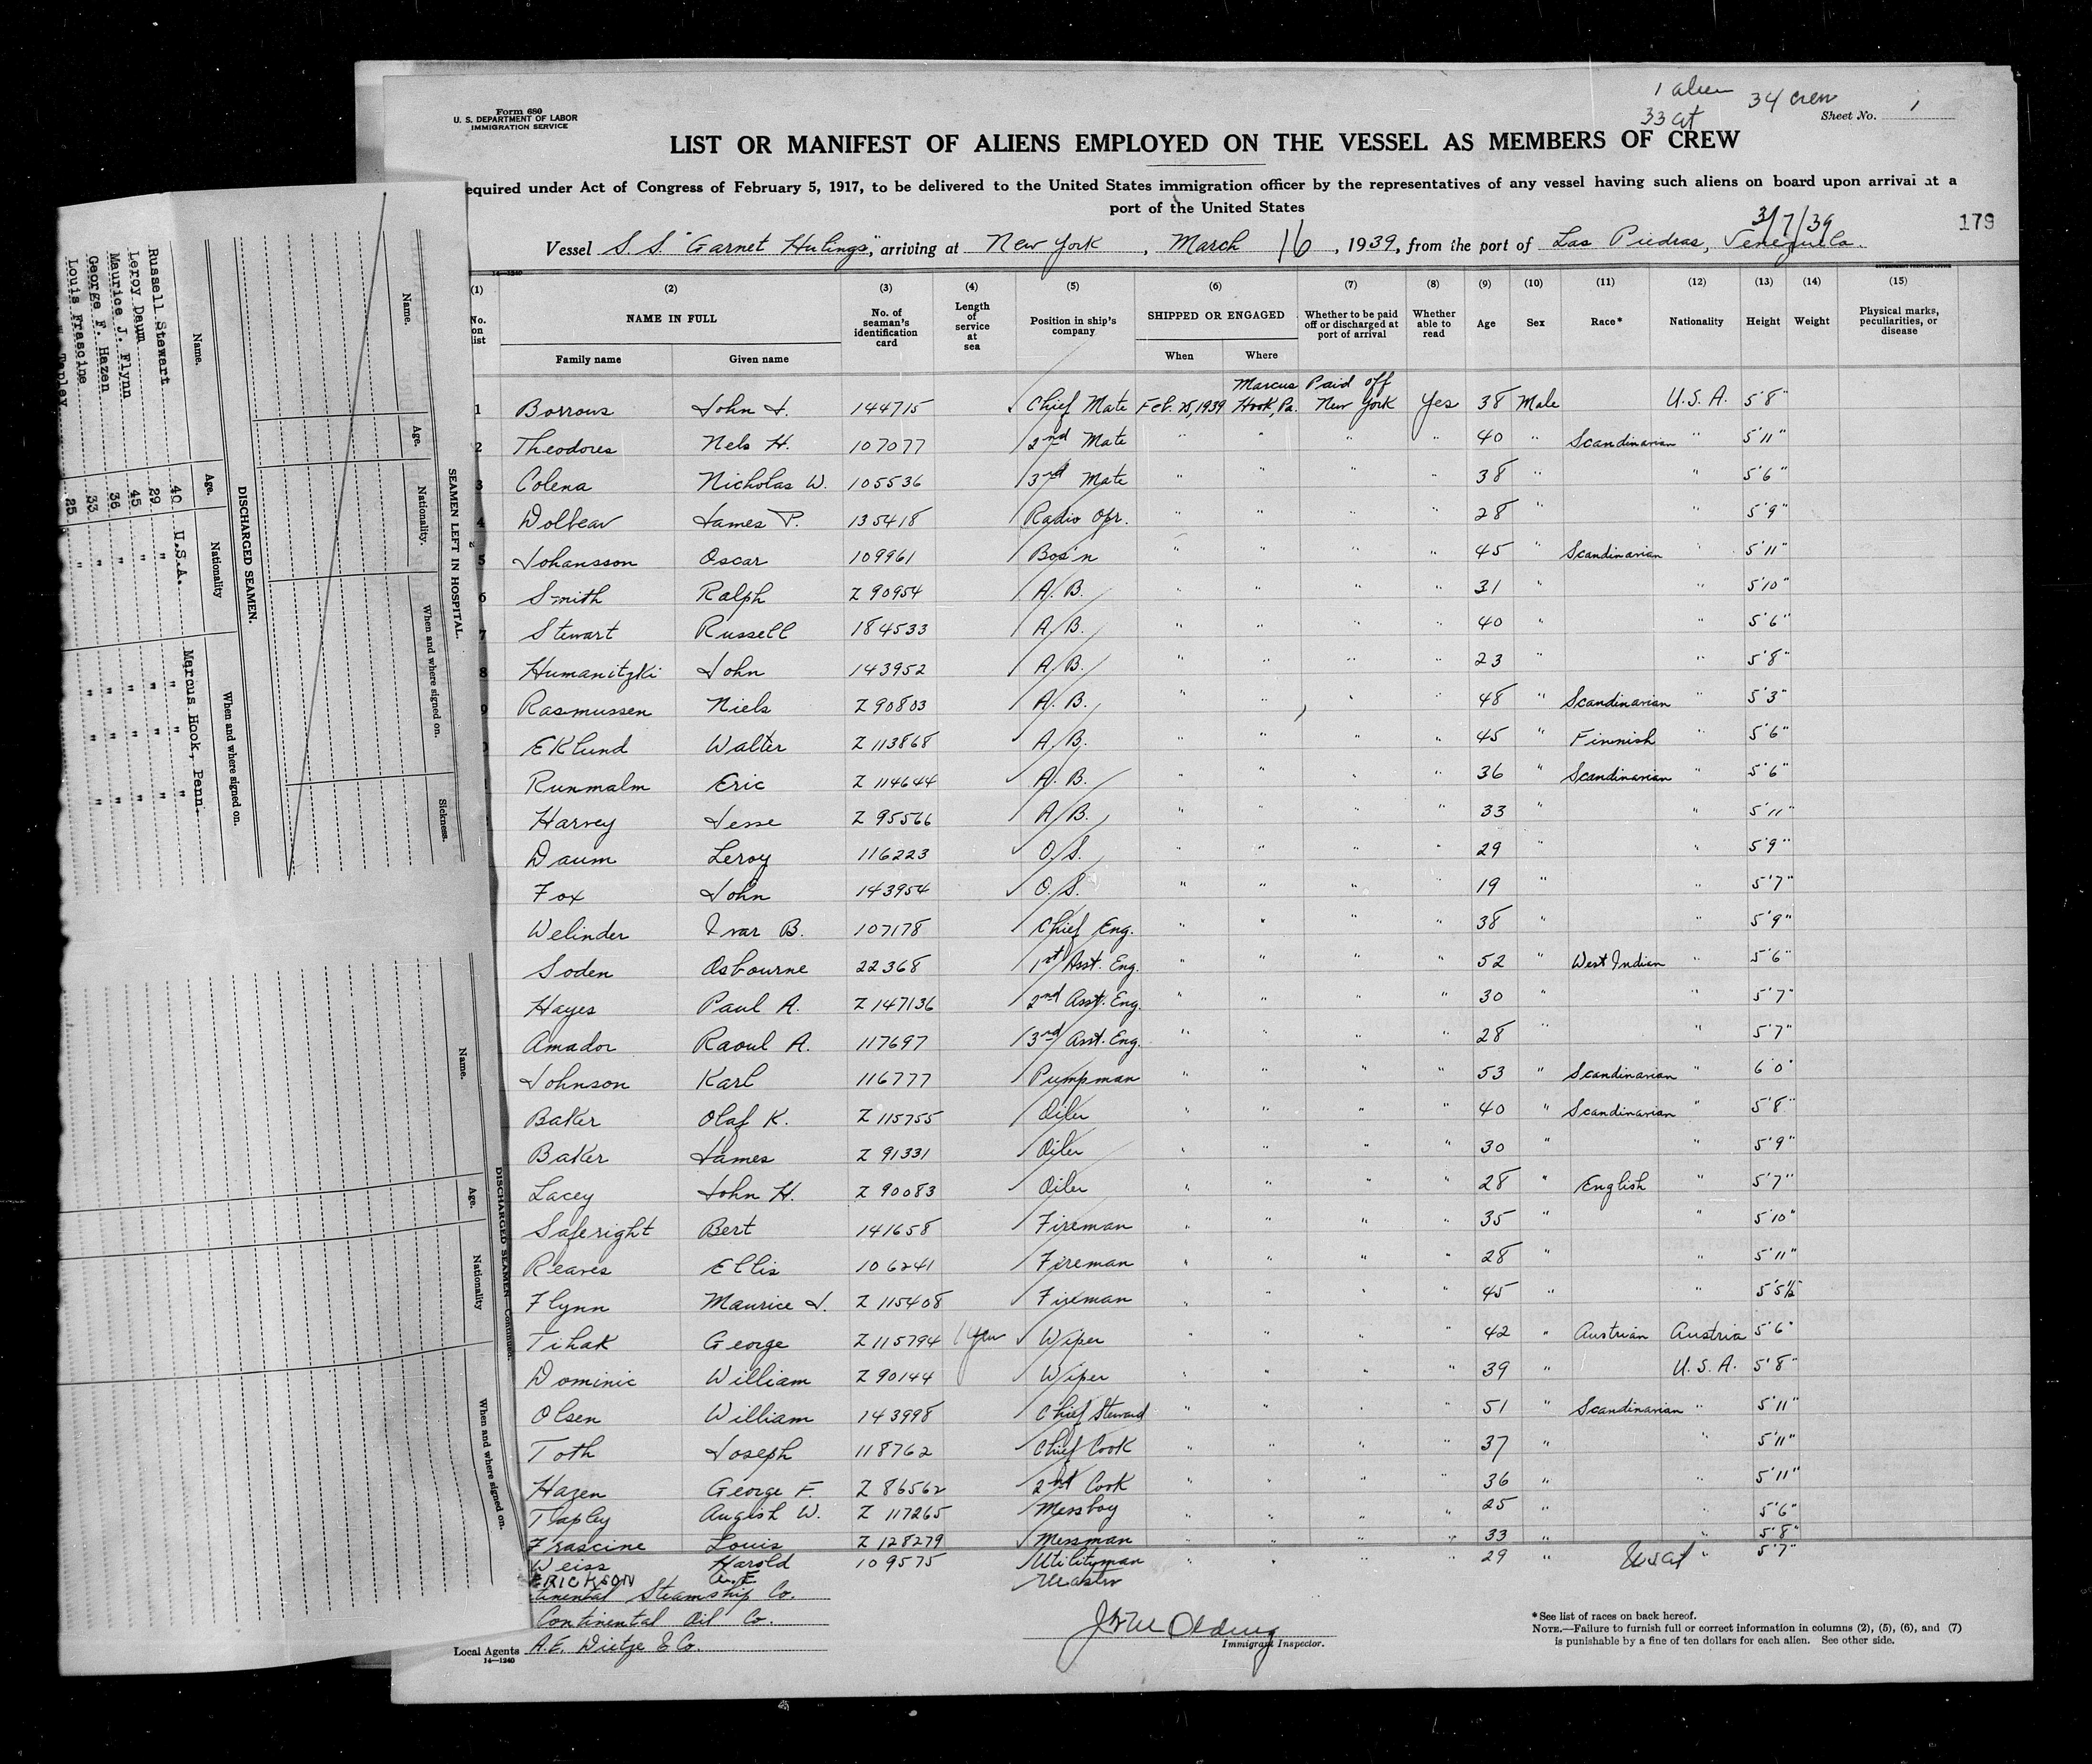 Form 680
U. S. DEPARTMENT OF LABOR
IMMIGRATION SERVICE
1 alien
33 cit
34 crew
Sheet No. 1
LIST OR MANIFEST OF ALIENS EMPLOYED ON THE VESSEL AS MEMBERS OF CREW
equired under Act of Congress of February 5, 1917, to be delivered to the United States immigration officer by the representatives of any vessel having such aliens on board upon arrival at a
port of the United States
3/7/39
179
Vessel S.S. "Garnet Hulings", arriving at New York, March 16, 1939, from the port of Las Piedras, Venezuela.
14—1240
(1) (2) (3) (4) (5) (6) (7) (8) (9) (10) (11) (12) (13) (14) (15)
No. on list NAME IN FULL Family name Given name No. of seaman's identification card Length of service at sea Position in ship's company SHIPPED OR ENGAGED When Where Whether to be paid off or discharged at port of arrival Whether able to read Age Sex Race* Nationality Height Weight Physical marks, peculiarities, or disease
1 Borrows John J. 144715 Chief Mate Feb. 25, 1939 Marcus Hook, Pa. Paid off New York Yes 38 Male U.S.A. 5'8"
2 Theodores Nels H. 107077 2nd Mate " " " " 40 " Scandinavian " 5'11"
3 Colena Nicholas W. 105536 3rd Mate " " " " 38 " " 5'6"
4 Dolbear James P. 135418 Radio Opr. " " " " 28 " " 5'9"
5 Johansson Oscar 109961 Bos'n " " " " 45 " Scandinavian " 5'11"
6 Smith Ralph Z 90954 A.B. " " " " 31 " " 5'10"
7 Stewart Russell 184533 A.B. " " " " 40 " " 5'6"
8 Humanitzki John 143952 A.B. " " " " 23 " " 5'8"
9 Rasmussen Niels Z 90803 A.B. " " " " 48 " Scandinavian " 5'3"
Eklund Walter Z 113868 A.B. " " " " 45 " Finnish " 5'6"
Runmalm Eric Z 114644 A.B. " " " " 36 " Scandinavian " 5'6"
Harvey Jesse Z 95566 A.B. " " " " 33 " " 5'11"
Daum Leroy 116223 O.S. " " " " 29 " " 5'9"
Fox John 143954 O.S. " " " " 19 " " 5'7"
Welinder Ivar B. 107178 Chief Eng. " " " " 38 " " 5'9"
Soden Osbourne 22368 1st Asst. Eng. " " " " 52 " West Indian " 5'6"
Hayes Paul A. Z 147136 2nd Asst. Eng. " " " " 30 " " 5'7"
Amador Raoul A. 117697 3rd Asst. Eng. " " " " 28 " " 5'7"
Johnson Karl 116777 Pumpman " " " " 53 " Scandinavian " 6'0"
Baker Olaf K. Z 115755 Oiler " " " " 40 " Scandinavian " 5'8"
Baker James Z 91331 Oiler " " " " 30 " " 5'9"
Lacey John H. Z 90083 Oiler " " " " 28 " English " 5'7"
Saferight Bert 141658 Fireman " " " " 35 " " 5'10"
Reaves Ellis 106241 Fireman " " " " 28 " " 5'11"
Flynn Maurice J. Z 115408 Fireman " " " " 45 " " 5'5½
Tihak George Z 115794 Wiper " " " " 42 " Austrian Austria 5'6"
Dominic William Z 90144 Wiper " " " " 39 " U.S.A. 5'8"
Olsen William 143998 Chief Steward " " " " 51 " Scandinavian " 5'11"
Toth Joseph 118762 Chief Cook " " " " 37 " " 5'11"
Hazen George F. Z 86562 2nd Cook " " " " 36 " " 5'11"
Tapley W. Z 117265 Messboy " " " " 25 " 5'6"
Frascine Louis Z 128279 Messman " " " " 33 " " 5'8"
Weiss Harold 109575 Utilityman " " " " 29 " " 5'7"
ERICKSON A.E. Master
tinental Steamship Co.
Continental Oil Co.
Local Agents A.E. Dietze & Co.
14—1240
Immigrant Inspector.
*See list of races on back hereof.
NOTE.—Failure to furnish full or correct information in columns (2), (5), (6), and (7)
is punishable by a fine of ten dollars for each alien. See other side.
SEAMEN LEFT IN HOSPITAL.
Name. Age. Nationality. When and where signed on. Sickness.
DISCHARGED SEAMEN.
Name. Age. Nationality When and where signed on.
Russell Stewart 40 U.S.A. Marcus Hook, Penn.
Leroy Daum 29 " " " "
Maurice J. Flynn 45 " " " "
George F. Hazen 36 " " " "
Louis Frascine 33 " " " "
Tapley 25 "
DISCHARGED SEAMEN—Continued.
Name. Age. Nationality When and where signed on.